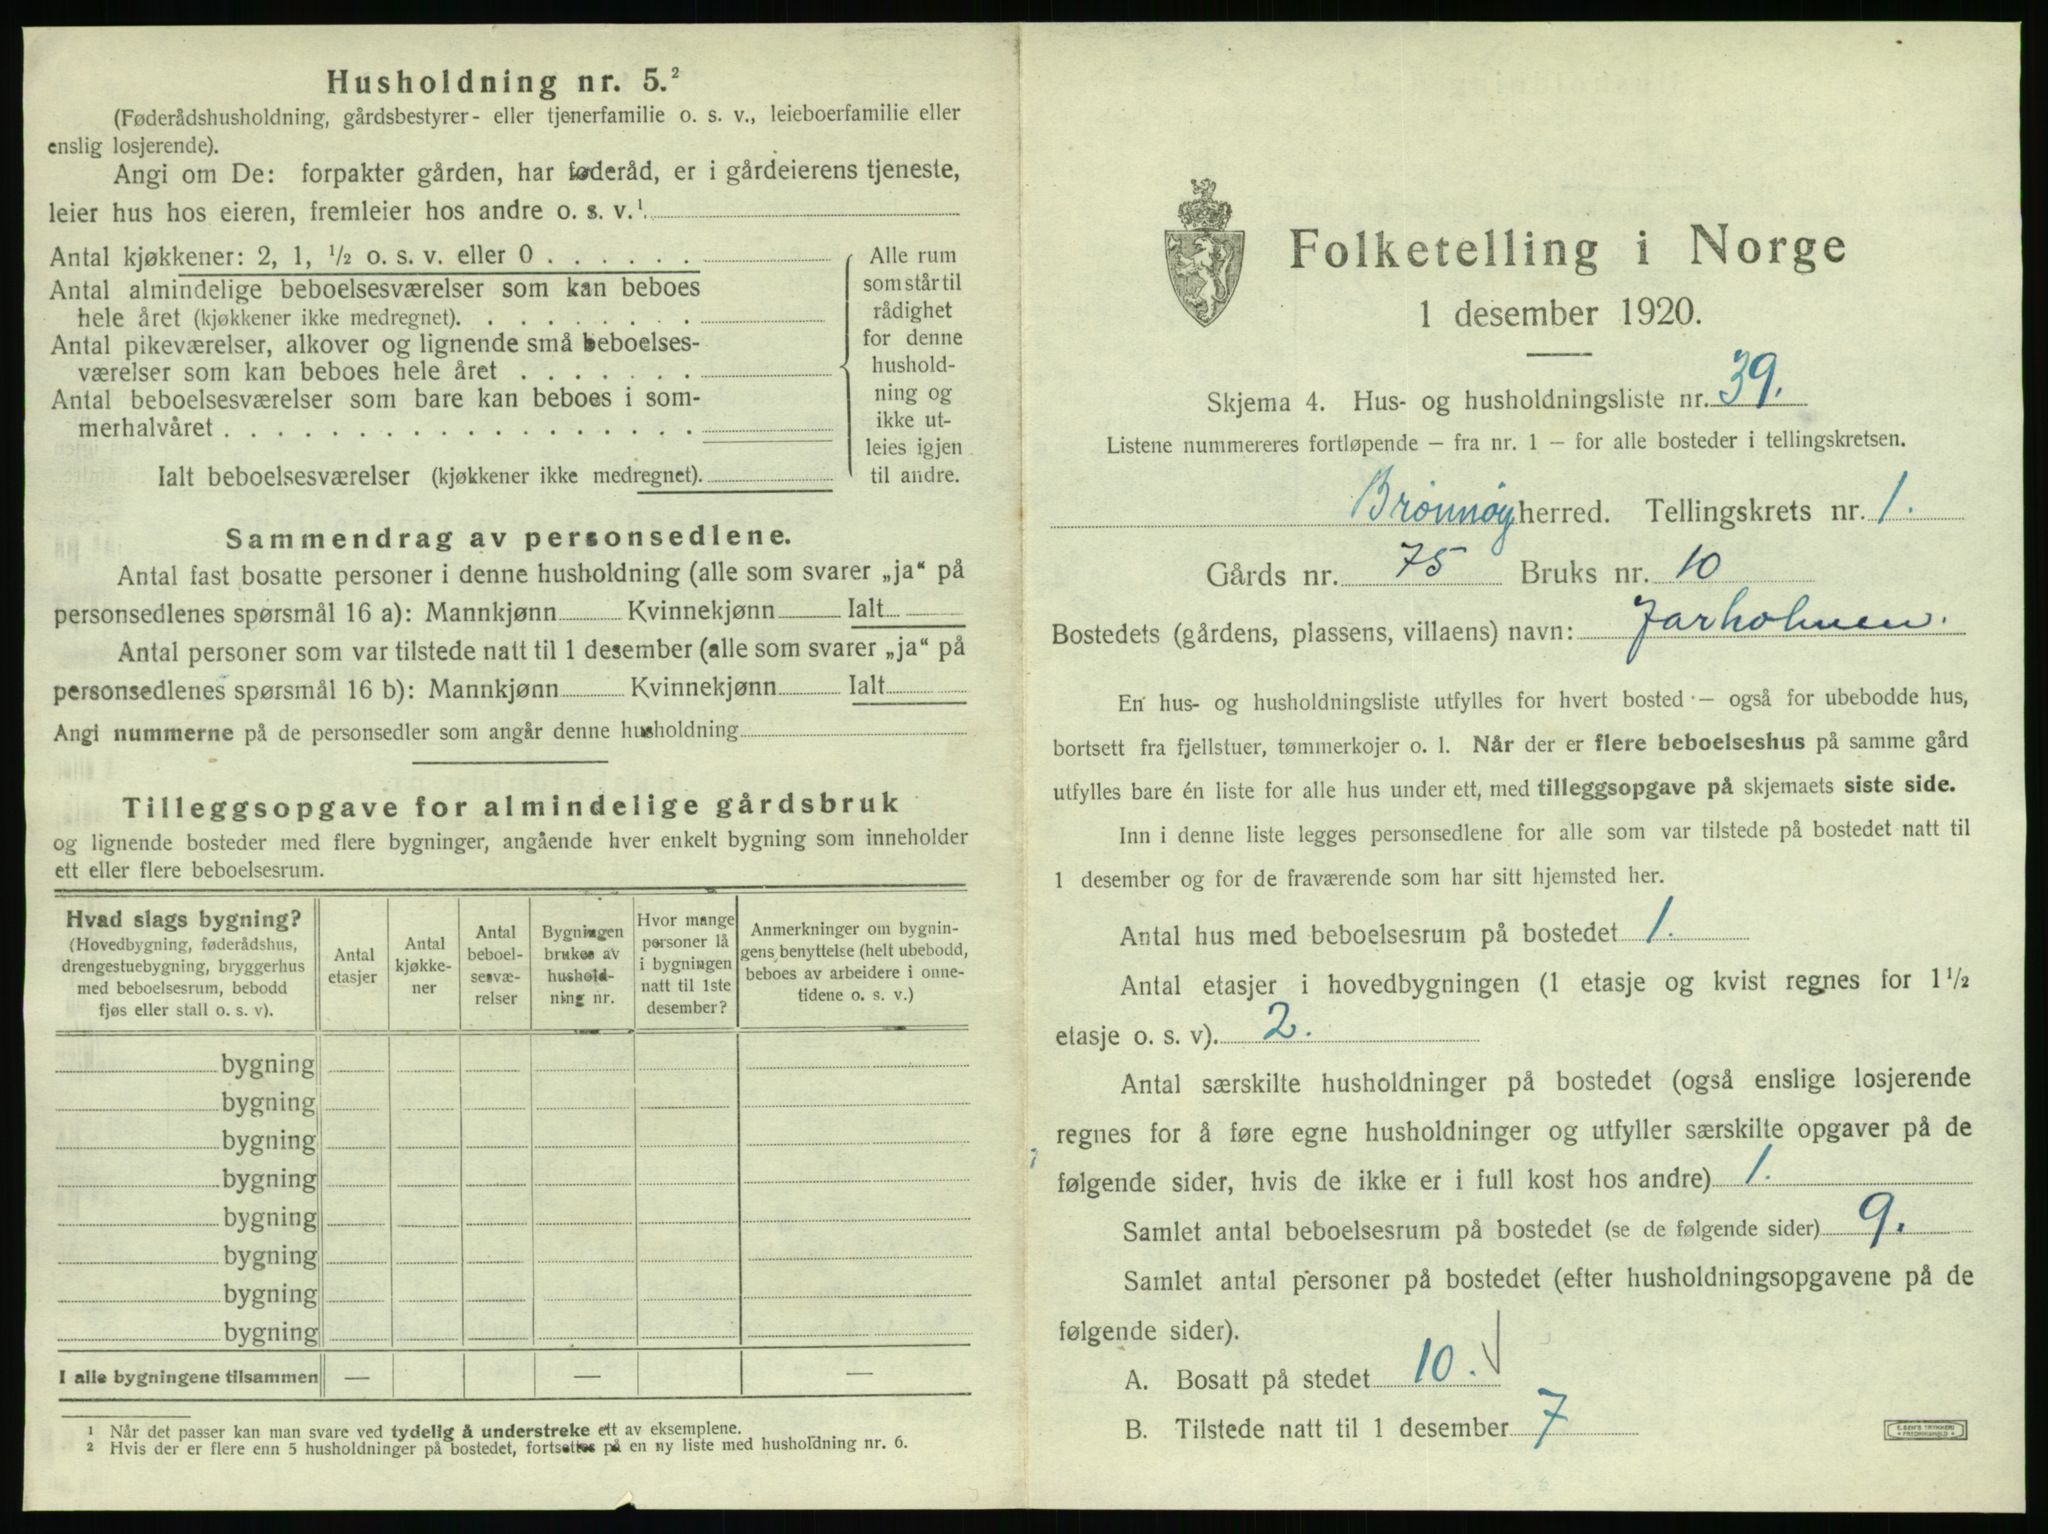 Husholdning nr. 5.²
(Føderådshusholdning, gårdsbestyrer- eller tjenerfamilie o. s. v., leieboerfamilie eller
enslig losjerende).
Angi om De: forpakter gården, har føderåd, er i gårdeierens tjeneste,
leier hus hos eieren, fremleier hos andre o. s. v.¹
Antal kjøkkener: 2, 1, ½ o. s. v. eller 0
Antal almindelige beboelsesværelser som kan beboes
hele året (kjøkkener ikke medregnet).
Antal pikeværelser, alkover og lignende små beboelses-
værelser som kan beboes hele året
Antal beboelsesværelser som bare kan beboes i som-
merhalvåret
Ialt beboelsesværelser (kjøkkener ikke medregnet).
Alle rum
som står til
rådighet
for denne
hushold-
ning og
ikke ut-
leies igjen
til andre.
Sammendrag av personsedlene.
Antal fast bosatte personer i denne husholdning (alle som svarer „ja“ på
personsedlenes spørsmål 16 a): Mannkjønn Kvinnekjønn Ialt
Antal personer som var tilstede natt til 1 desember (alle som svarer „ja“ på
personsedlenes spørsmål 16 b): Mannkjønn Kvinnekjønn Ialt
Angi nummerne på de personsedler som angår denne husholdning
Tilleggsopgave for almindelige gårdsbruk
og lignende bosteder med flere bygninger, angående hver enkelt bygning som inneholder
ett eller flere beboelsesrum.
Hvad slags bygning?
(Hovedbygning, føderådshus,
drengestuebygning, bryggerhus
med beboelsesrum, bebodd
fjøs eller stall o. s. v).
Antal
etasjer
Antal
kjøkke-
ner
Antal
beboel-
sesvæ-
relser
Bygningen
brukes av
hushold-
ning nr.
Hvor mange
personer lå
i bygningen
natt til 1ste
desember?
Anmerkninger om bygnin-
gens benyttelse (helt ubebodd,
beboes av arbeidere i onne-
tidene o. s. v.)
bygning
bygning
bygning
bygning
bygning
bygning
bygning
bygning
I alle bygningene tilsammen — — —
¹ Når det passer kan man svare ved tydelig å understreke ett av eksemplene.
² Hvis der er flere enn 5 husholdninger på bostedet, fortsettes på en ny liste med husholdning nr. 6.
Folketelling i Norge
1 desember 1920.
Skjema 4. Hus- og husholdningsliste nr. 39.
Listene nummereres fortløpende — fra nr. 1 — for alle bosteder i tellingskretsen.
Brønnøy herred. Tellingskrets nr. 1.
Gårds nr. 75 Bruks nr. 10
Bostedets (gårdens, plassens, villaens) navn: Jarholmen.
En hus- og husholdningsliste utfylles for hvert bosted — også for ubebodde hus,
bortsett fra fjellstuer, tømmerkojer o. l. Når der er flere beboelseshus på samme gård
utfylles bare én liste for alle hus under ett, med tilleggsopgave på skjemaets siste side.
Inn i denne liste legges personsedlene for alle som var tilstede på bostedet natt til
1 desember og for de fraværende som har sitt hjemsted her.
Antal hus med beboelsesrum på bostedet 1.
Antal etasjer i hovedbygningen (1 etasje og kvist regnes for 1½
etasje o. s. v). 2.
Antal særskilte husholdninger på bostedet (også enslige losjerende
regnes for å føre egne husholdninger og utfyller særskilte opgaver på de
følgende sider, hvis de ikke er i full kost hos andre) 1.
Samlet antal beboelsesrum på bostedet (se de følgende sider) 9.
Samlet antal personer på bostedet (efter husholdningsopgavene på de
følgende sider).
A. Bosatt på stedet 10. √
B. Tilstede natt til 1 desember 7